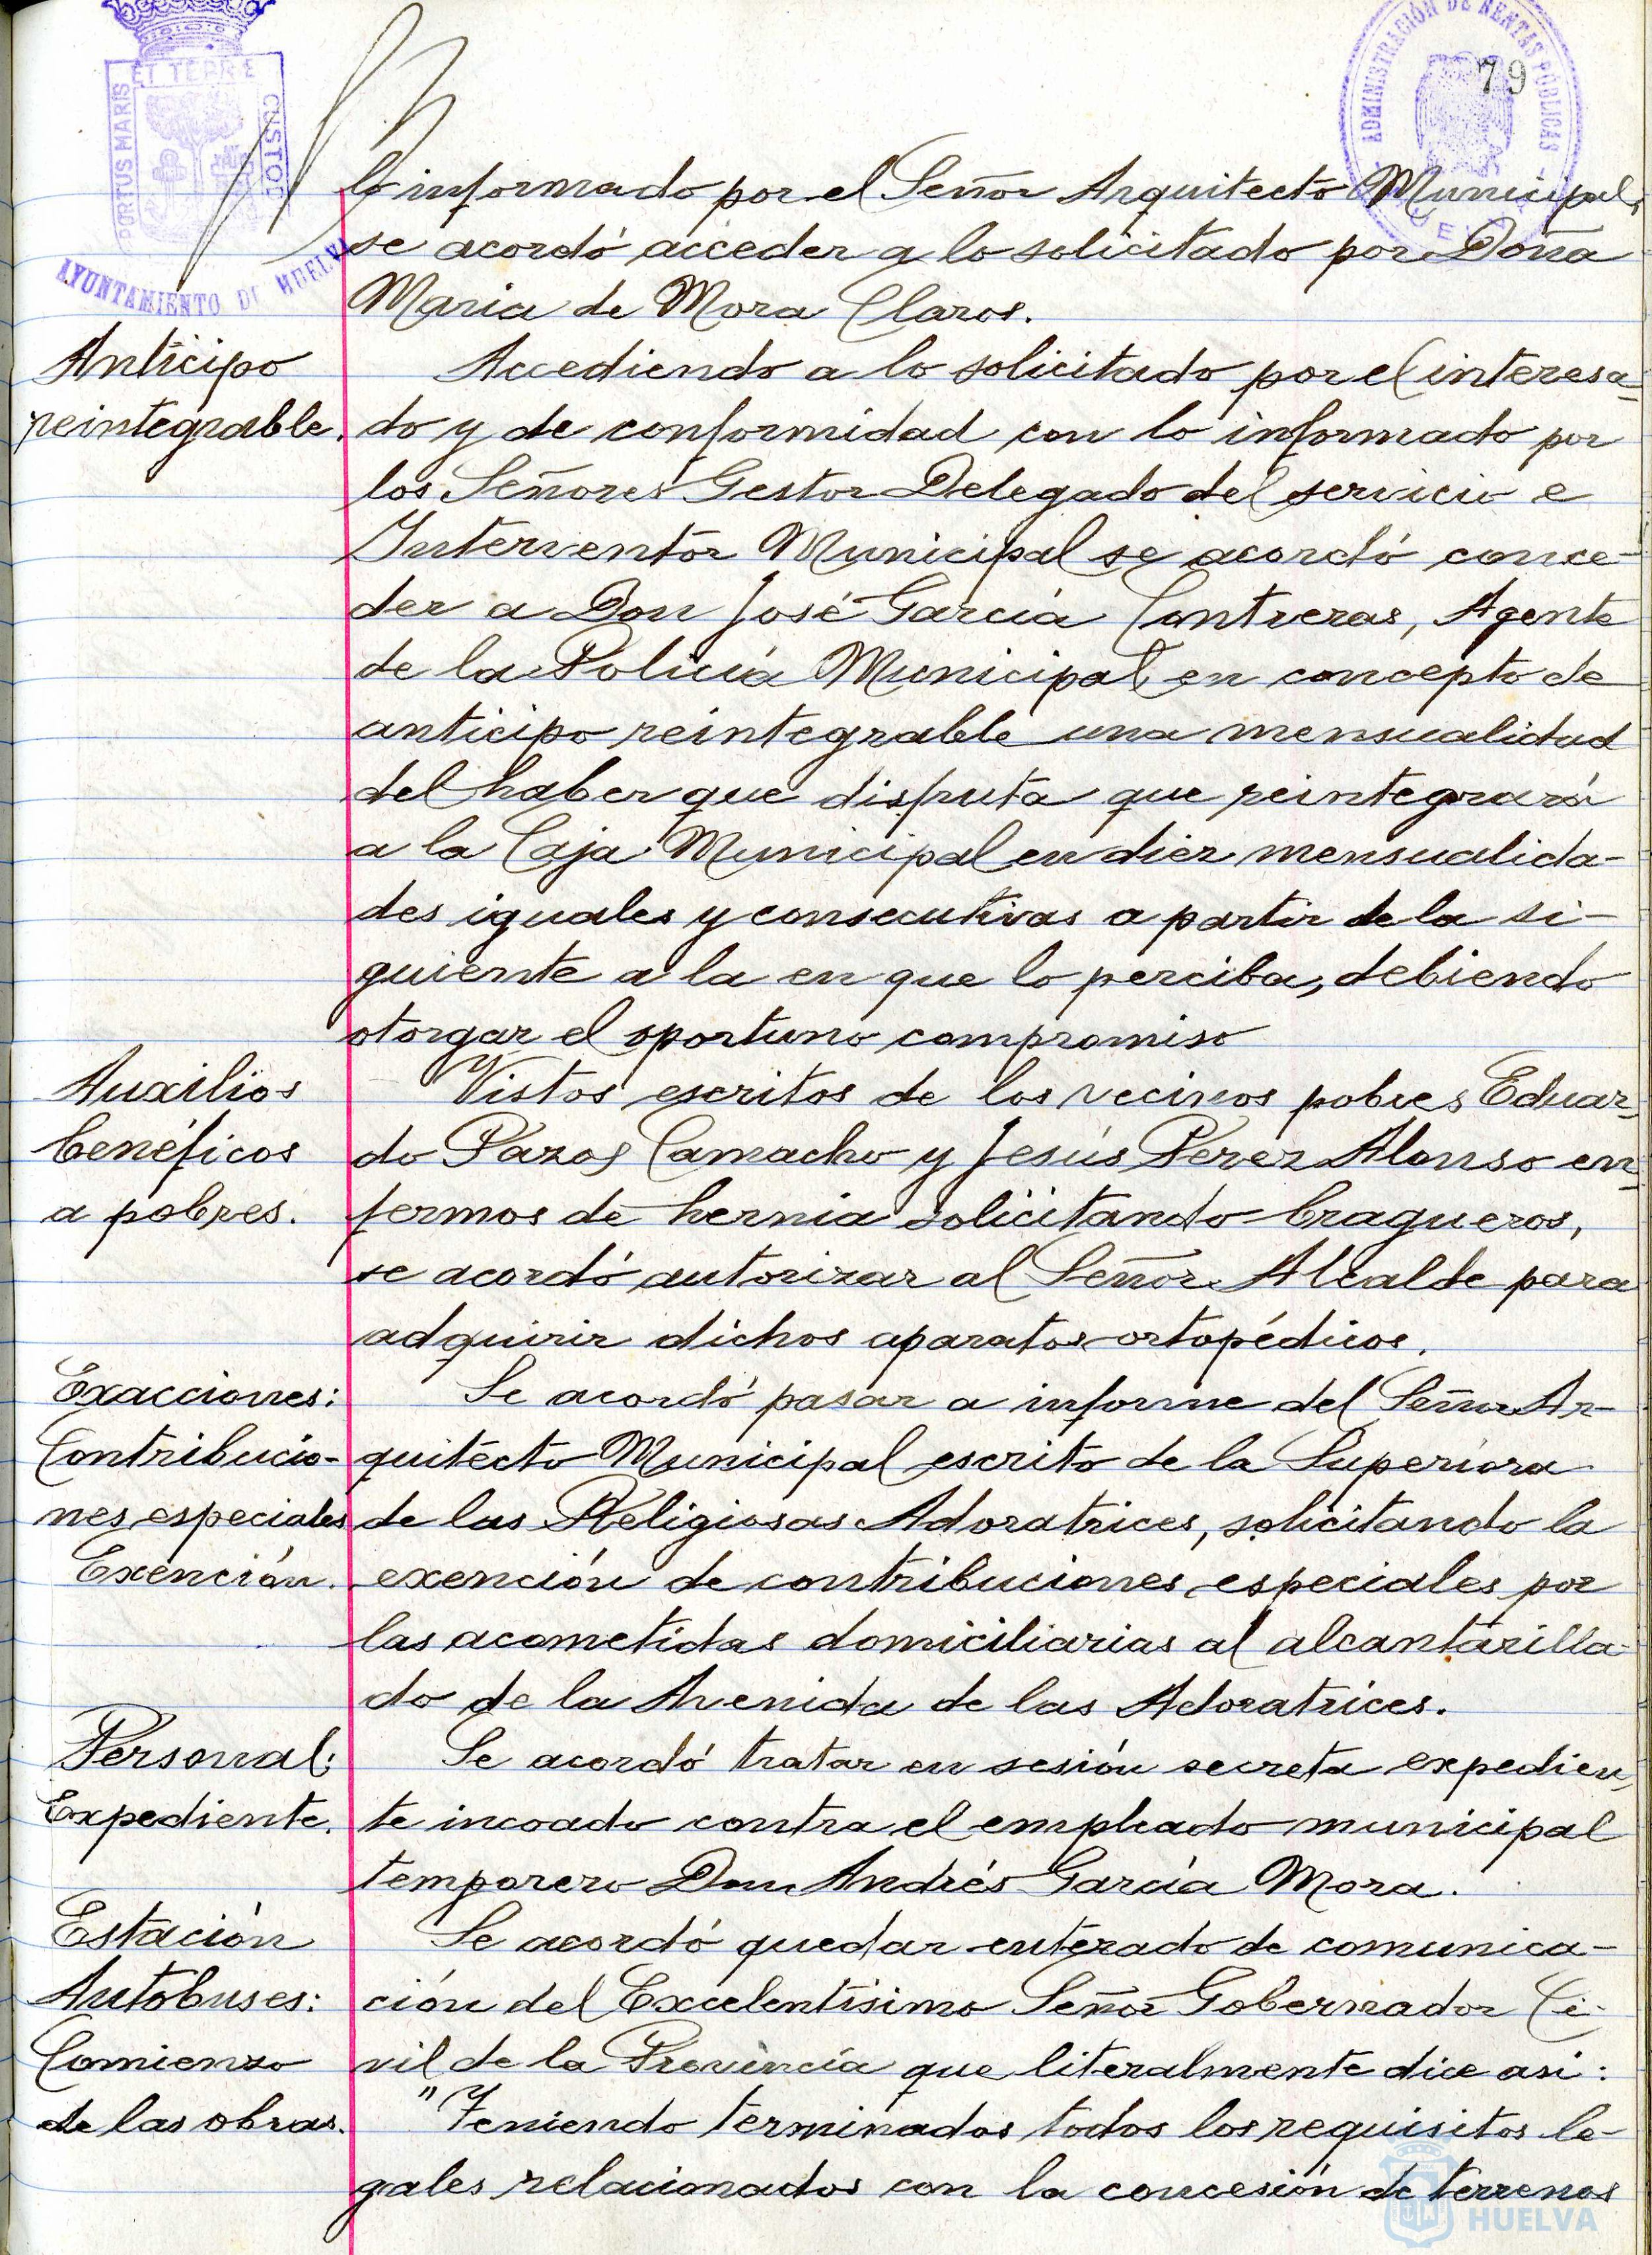 ET TERRE
PORTUS MARIS
CUSTOD
AYUNTAMIENTO DE HUELVA
ADMINISTRACIÓN DE RENTAS PÚBLICAS
79
lo informado por el Señor Arquitecto Municipal,
se acordó acceder a lo solicitado por Doña
Maria de Mora Claros.
Anticipo
reintegrable.
Accediendo a lo solicitado por el interesa-
do y de conformidad con lo informado por
los Señores Gestor Delegado del servicio e
Interventor Municipal se acordó conce-
der a Don José García Contreras, Agente
de la Policía Municipal, en concepto de
anticipo reintegrable una mensualidad
del haber que disfruta que reintegrará
a la Caja Municipal en diez mensualida-
des iguales y consecutivas a partir de la si-
guiente a la en que lo perciba, debiendo
otorgar el oportuno compromiso
Auxilios
benéficos
a pobres.
Vistos escritos de los vecinos pobres Eduar-
do Pazos Camacho y Jesús Perez Alonso en-
fermos de hernia solicitando bragueros,
se acordó autorizar al Señor Alcalde para
adquirir dichos aparatos ortopédicos.
Exacciones:
Contribucio-
nes especiales
Exención.
Se acordó pasar a informe del Señor Ar-
quitecto Municipal escrito de la Superiora
de las Religiosas Adoratrices, solicitando la
exención de contribuciones especiales por
las acometidas domiciliarias al alcantarilla-
do de la Avenida de las Adoratrices.
Personal:
Expediente.
Se acordó tratar en sesión secreta expedien-
te incoado contra el empleado municipal
temporero Don Andrés García Mora.
Estación
Autobuses:
Comienzo
de las obras.
Se acordó quedar enterado de comunica-
ción del Excelentísimo Señor Gobernador Ci-
vil de la Provincia que literalmente dice asi:
"Teniendo terminados todos los requisitos le-
gales relacionados con la concesión de terrenos
HUELVA